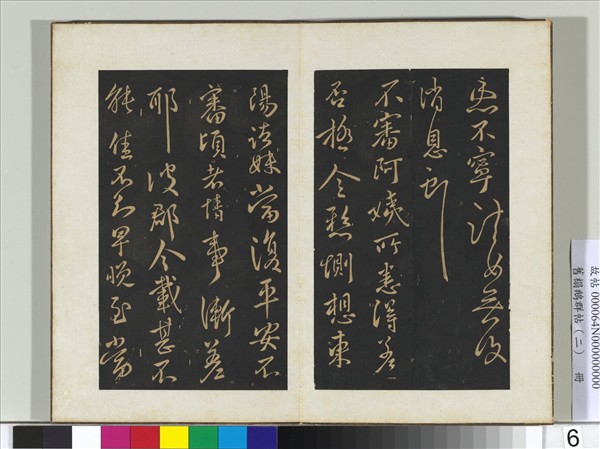 患不寧諸女無復
消息耶
不審阿姨所患得差
否極令懸惻想東
陽諸妹當復平安不
審頃者情事漸差
耶彼郡今載甚不
能佳不知早晚至當
故帖 000064N000000000
舊搨鵝群帖(二) 冊
6